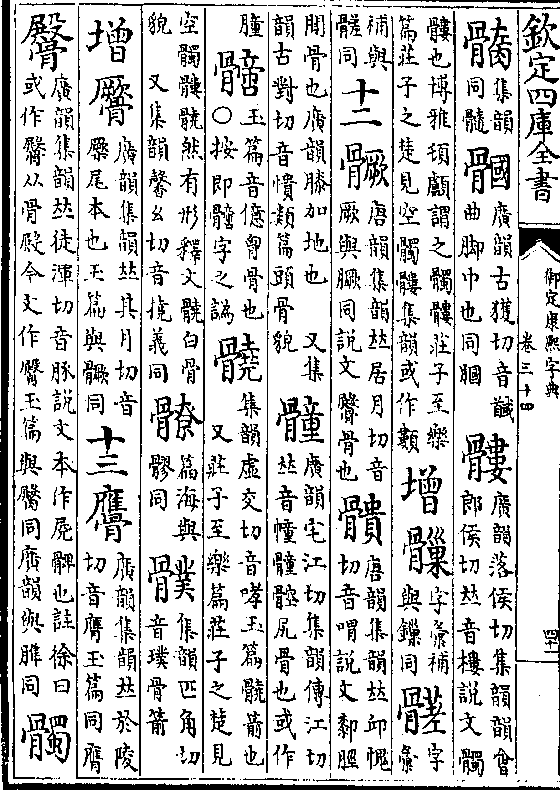 欽定四庫全書
御定康熙字典
卷三十四
集韻
同髓
膕
廣韻古獲切音馘
曲脚巾也同膕
髏
廣韻落侯切集韻韻會
郎侯切𠀤音樓說文髑
髏也博雅頊顱謂之髑髏莊子至樂
篇莊子之楚見空髑髏集韻或作䫫
增
字彙補
與鏁同
髊
字彙
補與
髊同
十二
唐韻集韻𠀤居月切音
厥與𦠒同說文臀骨也
髖
唐韻集韻𠀤丘愧
切音喟說文厀脛
間骨也廣韻膝加地也 又集
韻古對切音憒類篇頭骨貌
廣韻宅江切集韻傳江切
𠀤音幢髖尻骨也或作
𦡴
玉篇音億胷骨也
○按即𩪞字之譌
髐
集韻虛交切音哮玉篇髐箭也
又莊子至樂篇莊子之楚見
空髑髏髐然有形釋文髐白骨
貌 又集韻馨幺切音㨭義同
髎
篇海與
髎同
集韻匹角切
音璞骨箭
增
廣韻集韻𠀤其月切音
橜尾本也玉篇與𩪗同
十三
廣韻集韻𠀤於陵
切音膺玉篇同膺
廣韻集韻𠀤徒渾切音豚說文本作𡱂髀也註徐曰
或作臋从骨殿今文作臀玉篇與臀同廣韻與脽同
髑